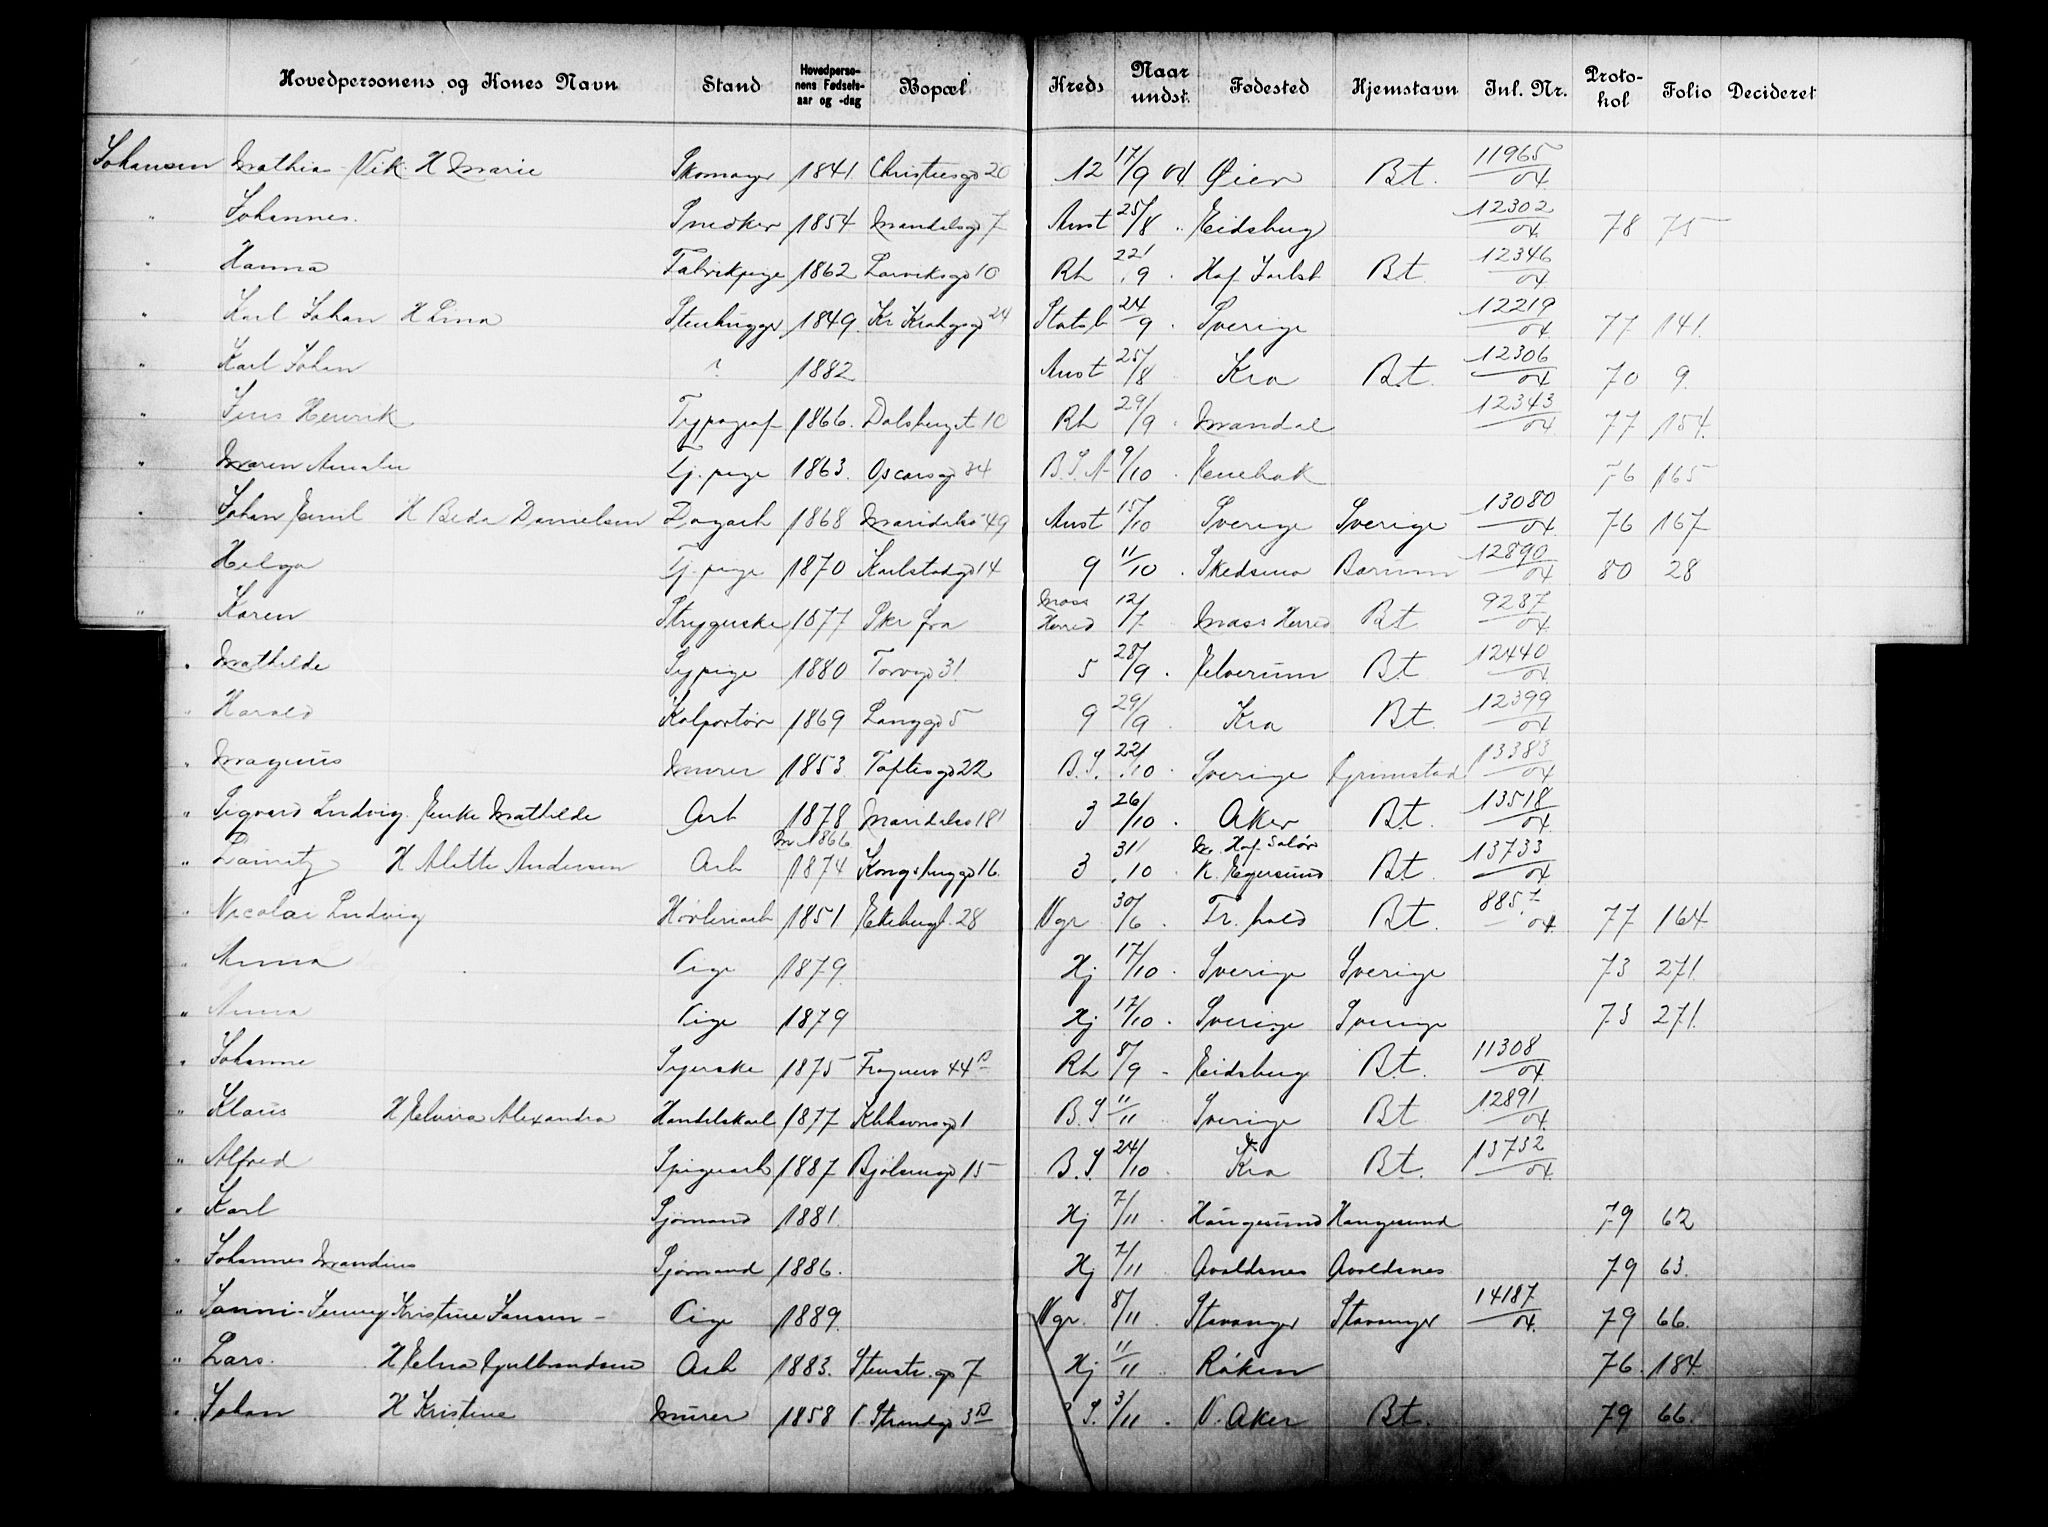 Hovedpersonens og Kones Navn Stand Hovedperso-nens Fødsels-aar og -dag Bopæl Kreds Naar undst. Fødested Hjemstavn Inl. Nr. Proto-kol Folio Decideret
Johansen Mathias Vik. H Marie Skomager 1841. Christiesgd 20 12 17/9 04 Øier Bt. 11965/04
" Johannes. Snedker 1854 Mandalsgd 7 Anst 25/8 " Eidsberg 12302/04 78 75
" Hanna Fabrikpige 1862 Larviksgd 10 Rh 22/9 " Hof Jarlsb Bt. 12346/04
" Karl Johan H Lina Stenhugger 1849. Kr Kroghsgd 24 Statsb 24/9 " Sverige 12219/04 77 141.
" Karl Johan ? 1882 Anst 25/8 Kra Bt. 12306/04 70 9.
" Jens Henrik Typograf 1866. Dalsbergst 10 Rh 29/9 " Mandal 12343/04 77 154.
" Maren Amalie Tj. pige 1863. Oscarsgd 34 9/10 " Enebak 76 165
" Johan Emil H Beda Danielsen Dagarb 1868 Maridalsv 49 Anst 15/10 Sverige Sverige 13080/04 76 167
" Helga Tj. pige 1870 Karlstadgd 14 9 11/10 " Skedsmo Bærum 12890/04 80 28
" Karen Strygerske 1877 Moss Herred 12/7 Moss Herred Bt 9287/04
" Mathilde Sypige 1880 Torvgd 31. 5 28/9 " Elverum Bt 12440/04
" Harald Kolportør 1869 Langgd 5 9 29/9 " Kra Bt. 12399/04
" Magnus Murer 1853 Toftesgd 22 B.S. 22/10 " Sverige Grimstad 13383/04
" Sigvard Ludvig. Enke Mathilde Arb 1878 Maridalsv 181 3 26/10 " Aker Bt. 13518/04
" Lauritz H Alette Andersen Arb M. 1866 1874 Kongsberggd 16. 3 31/10 M. Hof Solør K. Egersund Bt. 13733/04
" Nicolai Ludvig Høvleriarb 1851 Ekebergv. 28 Vgr 30/6 " Fr. hald Bt. 8857/04 77 164
" Anna Pige 1879. Hj 17/10 " Sverige Sverige 73 271.
" Anna Pige 1879 Hj 17/10 " Sverige Sverige 73 271.
" Johanne Syerske 1875 Fragnerv 44 B Rh 8/9 " Eidsberg Bt. 11308/04
" Klaus H Elvira Alexandra Handelskarl 1877 Kbhavnsgd 1 B.S 11/11 " Sverige Bt 12891/04
" Alfred Spigerarb 1887 Bjølsensgd 15 B.S. 24/10 " Kra Bt. 13732/04
" Karl Sjømand 1881. Hj 7/11 " Haugesund Haugesund 79 62
" Johannes Mandius Sjømand 1886. Hj 7/11 " Avaldsnes Avaldsnes 79 63.
" Janni- Jenny Kristine Jansen - Pige 1889. Vgr. 8/11 " Stavanger Stavanger 14187/04 79 66.
" Lars. H Elna Gulbrandsen Arb 1883. Stenstr. gd 7 Hj 11/11 " Røken 76. 184.
" Johan H Kristine Murer 1858 Strandgd 3 B S. 3/11 " V. Aker Bt. 79 66.